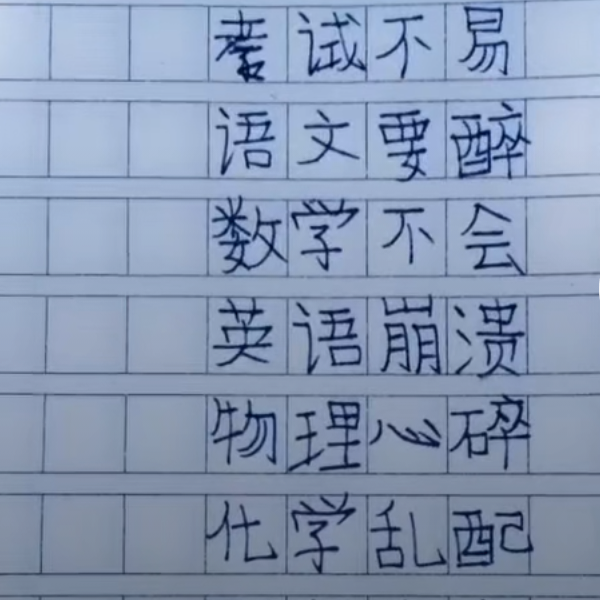 考试不易
语文要醉
数学不会
英语崩溃
物理心碎
化学乱配